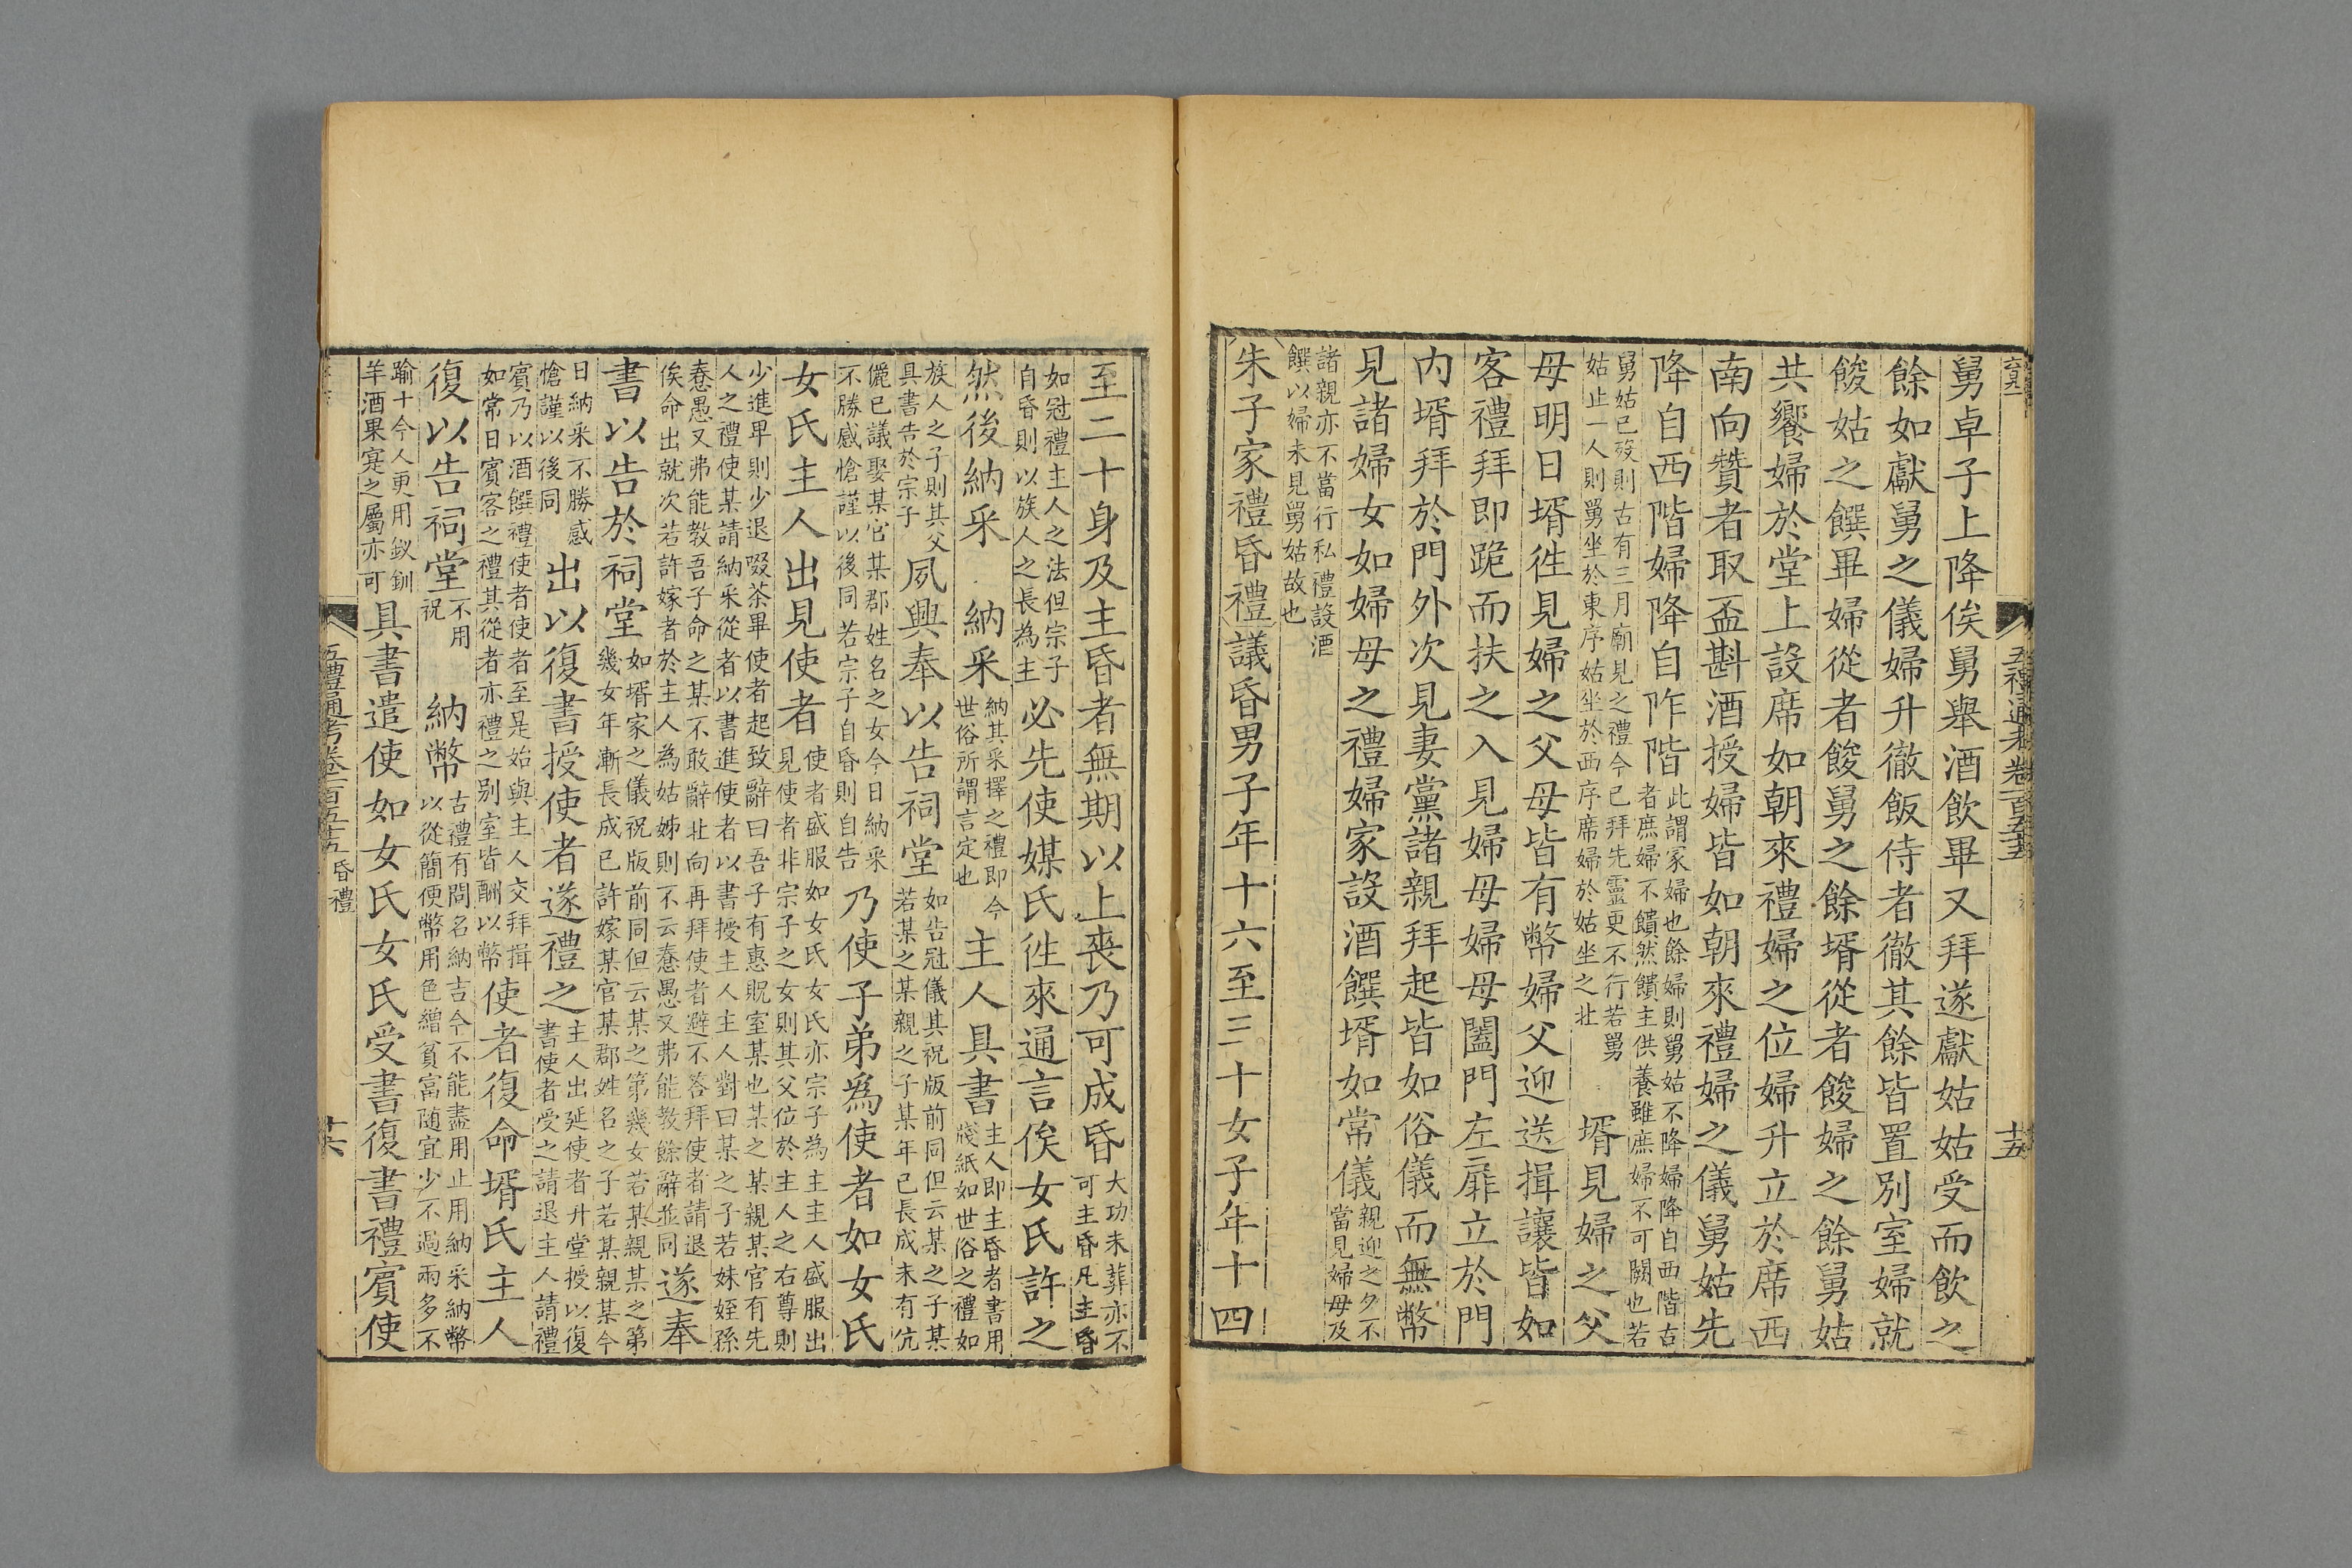 五禮通考卷一百五十五
十五
舅卓子上降俟舅舉酒飲畢又拜遂獻姑姑受而飲之
餘如獻舅之儀婦升徹飯侍者徹其餘皆置別室婦就
餕姑之饌畢婦從者餕舅之餘壻從者餕婦之餘舅姑
共饗婦於堂上設席如朝來禮婦之位婦升立於席西
南向贊者取盃斟酒授婦皆如朝來禮婦之儀舅姑先
降自西階婦降自阼階
此謂冢婦也餘婦則舅姑不降婦降自西階古
者庶婦不饋然饋主供養雖庶婦不可闕也若
舅姑已歿則古有三月廟見之禮今已拜先靈更不行若舅
姑止一人則舅坐於東序姑坐於西序席婦於姑坐之北
壻見婦之父
母明日壻徃見婦之父母皆有幣婦父迎送揖讓皆如
客禮拜即跪而扶之入見婦母婦母闔門左扉立於門
內壻拜於門外次見妻黨諸親拜起皆如俗儀而無幣
見諸婦女如婦母之禮婦家設酒饌壻如常儀
親迎之夕不
當見婦母及
諸親亦不當行私禮設酒
饌以婦未見舅姑故也
朱子家禮昏禮議昏男子年十六至三十女子年十四
至二十身及主昏者無期以上喪乃可成昏
大功未葬亦不
可主昏凡主昏
如冠禮主人之法但宗子
自昏則以族人之長為主
必先使媒氏徃來通言俟女氏許之
然後納采 納采
納其采擇之禮即今
世俗所謂言定也
主人具書
主人即主昏者書用
牋紙如世俗之禮如
族人之子則其父
具書告於宗子
夙興奉以告祠堂
如告冠儀其祝版前同但云某之子某
若某之某親之子某年已長成未有伉
儷已議娶某官某郡姓名之女今日納采
不勝感愴謹以後同若宗子自昏則自告
乃使子弟為使者如女氏
女氏主人出見使者
使者盛服如女氏女氏亦宗子為主主人盛服出
見使者非宗子之女則其父位於主人之右尊則
少進卑則少退啜茶畢使者起致辭曰吾子有惠貺室某也某之某親某官有先
人之禮使某請納采從者以書進使者以書授主人主人對曰某之子若妹姪孫
惷愚又弗能教吾子命之某不敢辭北向再拜使者避不答拜使者請退
俟命出就次若許嫁者於主人為姑姊則不云惷愚又弗能教餘辭並同
遂奉
書以告於祠堂
如壻家之儀祝版前同但云某之第幾女若某親某之第
幾女年漸長成已許嫁某官某郡姓名之子若某親某今
日納采不勝感
愴謹以後同
出以復書授使者遂禮之
主人出延使者升堂授以復
書使者受之請退主人請禮
賓乃以酒饌禮使者使者至是始與主人交拜揖
如常日賓客之禮其從者亦禮之別室皆酬以幣
使者復命壻氏主人
復以告祠堂
不用
祝
納幣
古禮有問名納吉今不能盡用止用納采納幣
以從簡便幣用色繒貧富隨宜少不過兩多不
踰十今人更用釵釧
羊酒果實之屬亦可
具書遣使如女氏女氏受書復書禮賓使
五禮通考卷一百五十五 昏禮
十六